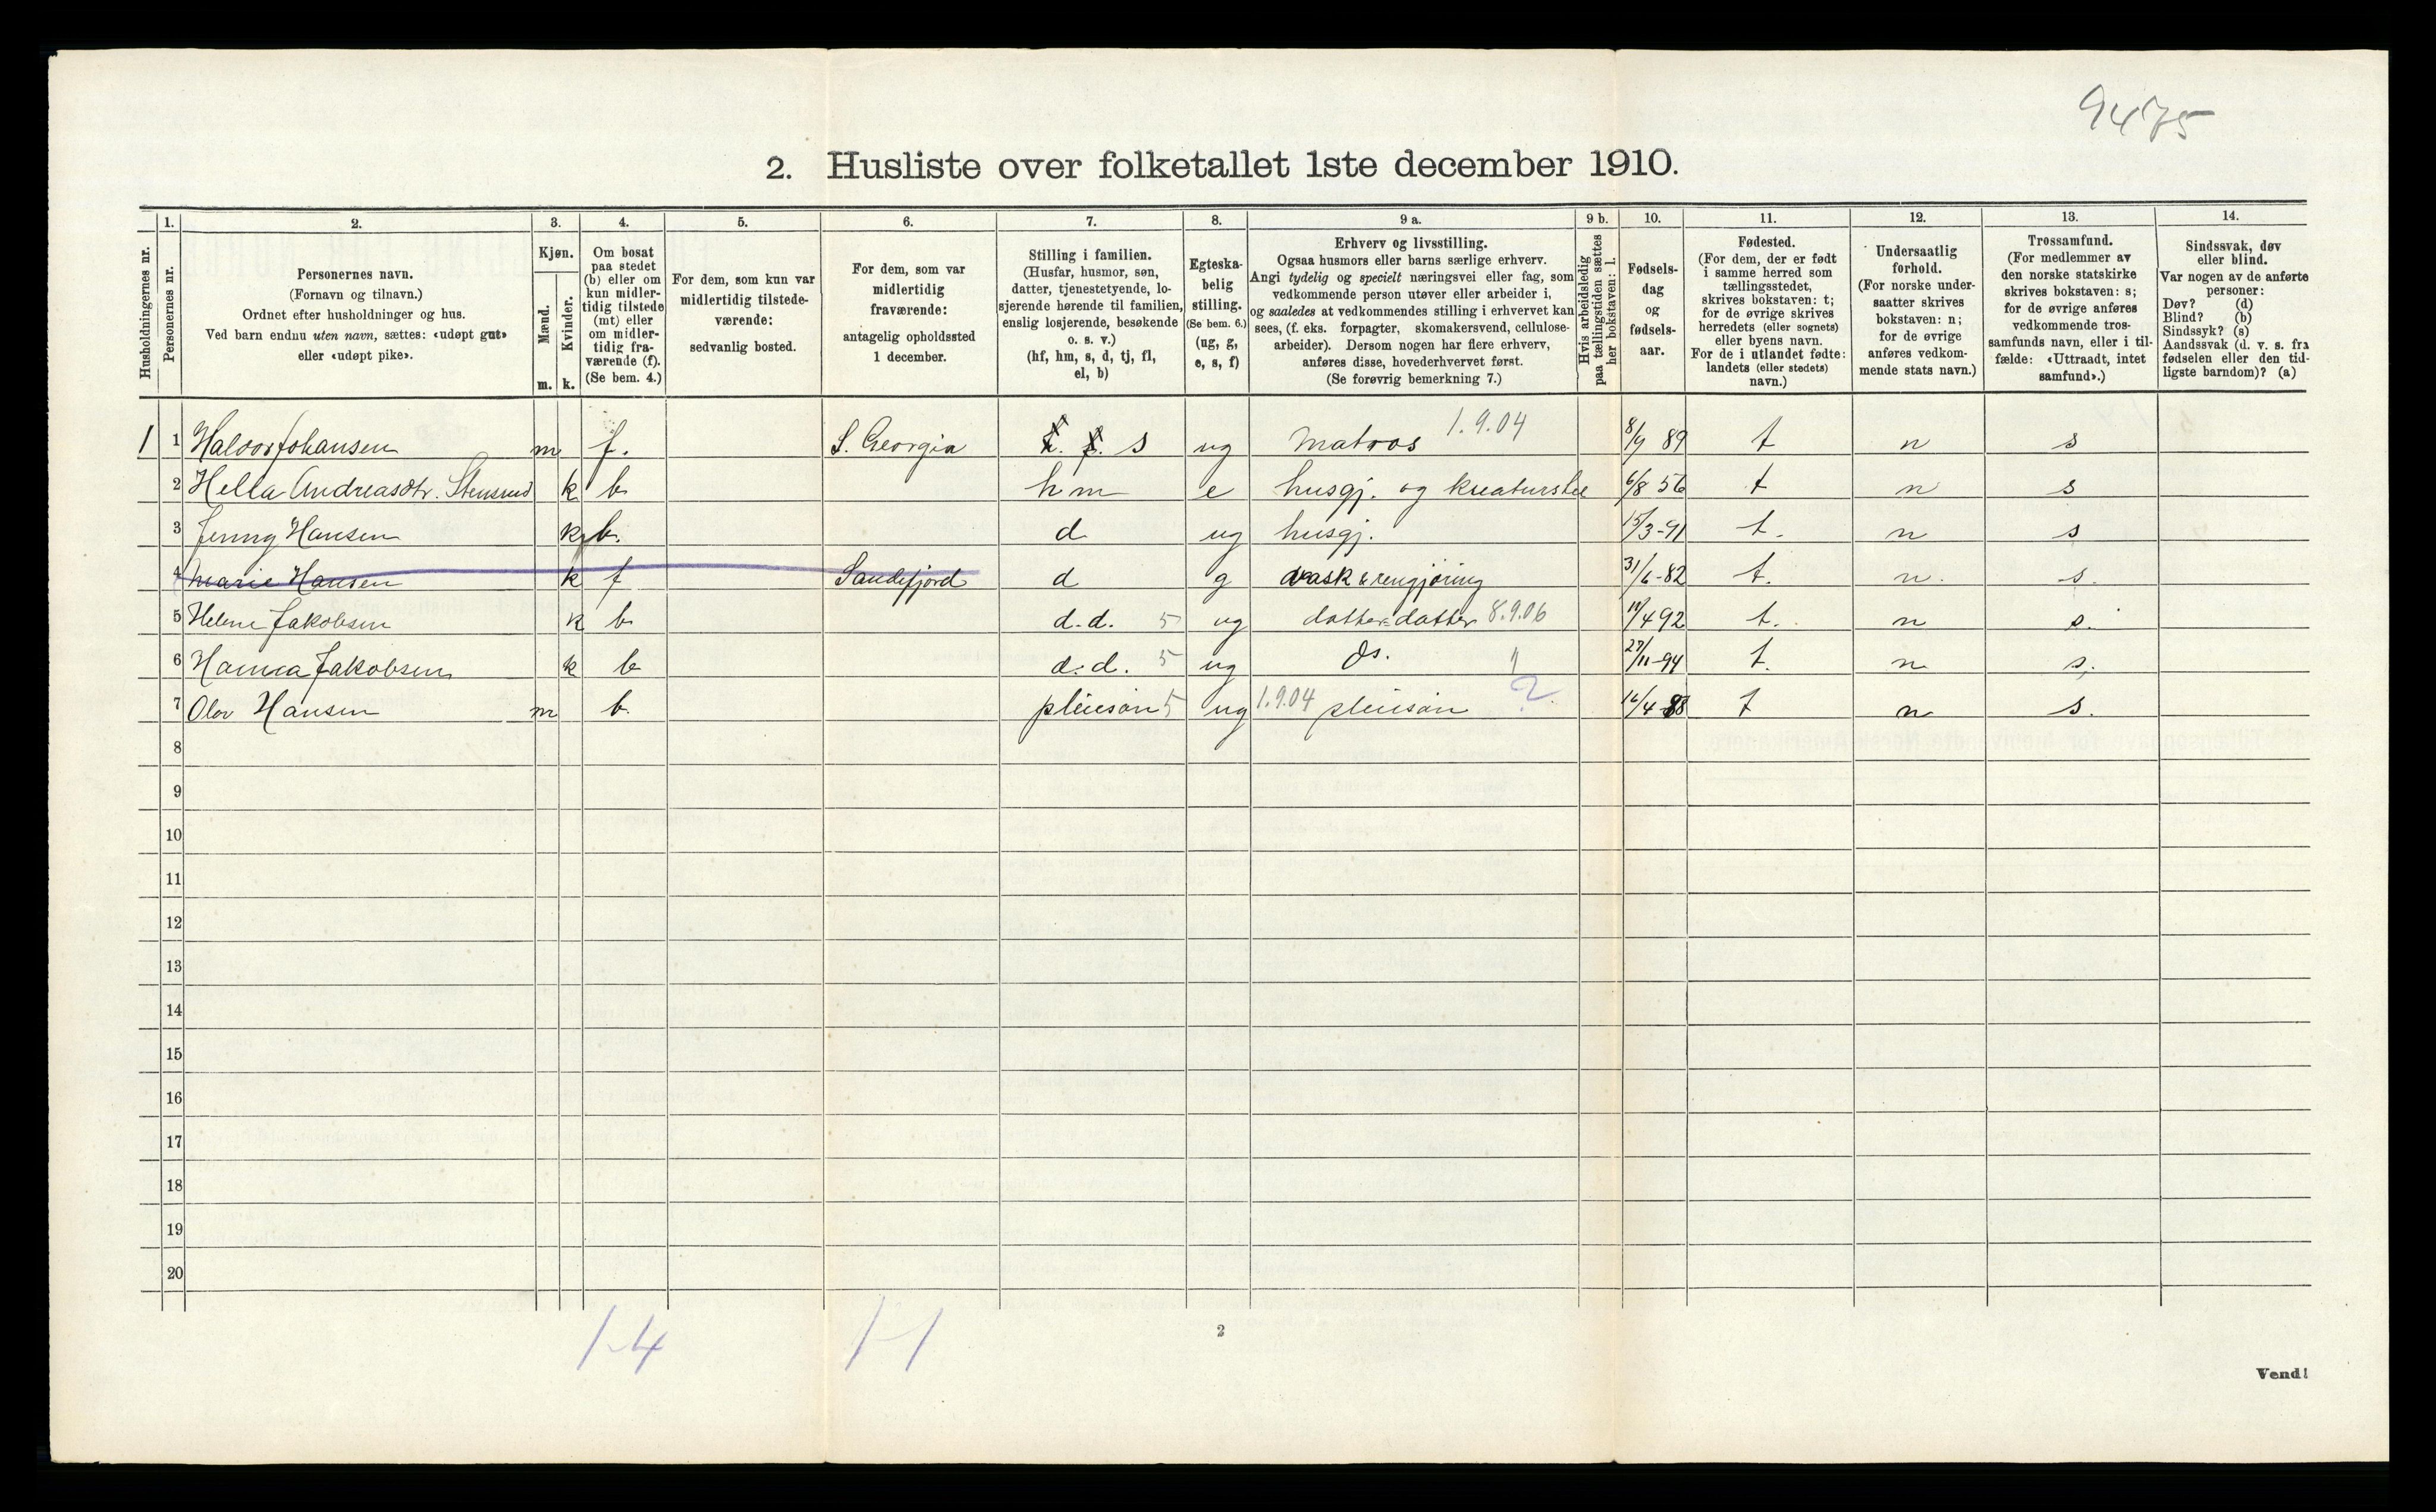 9475
2. Husliste over folketallet 1ste december 1910.
Husholdningernes nr.
1.
Personernes nr.
2.
Personernes navn.
(Fornavn og tilnavn.)
Ordnet efter husholdninger og hus.
Ved barn endnu uten navn, sættes: «udøpt gut»
eller «udøpt pike».
3.
Kjøn.
Mænd.
m.
Kvinder.
k.
4.
Om bosat
paa stedet
(b) eller om
kun midler-
tidig tilstede
(mt) eller
om midler-
tidig fra-
værende (f).
(Se bem. 4.)
5.
For dem, som kun var
midlertidig tilstede-
værende:
sedvanlig bosted.
6.
For dem, som var
midlertidig
fraværende:
antagelig opholdssted
1 december.
7.
Stilling i familien.
(Husfar, husmor, søn,
datter, tjenestetyende, lo-
sjerende hørende til familien,
enslig losjerende, besøkende
o. s. v.)
(hf, hm, s, d, tj, fl,
el, b)
8.
Egteska-
belig
stilling.
(Se bem. 6.)
(ug, g,
e, s, f)
9 a.
Erhverv og livsstilling.
Ogsaa husmors eller barns særlige erhverv.
Angi tydelig og specielt næringsvei eller fag, som
vedkommende person utøver eller arbeider i,
og saaledes at vedkommendes stilling i erhvervet kan
sees, (f. eks. forpagter, skomakersvend, cellulose-
arbeider). Dersom nogen har flere erhverv,
anføres disse, hovederhvervet først.
(Se forøvrig bemerkning 7.)
9 b.
Hvis arbeidsledig
paa tællingstiden sættes
her bokstaven: l.
10.
Fødsels-
dag
og
fødsels-
aar.
11.
Fødested.
(For dem, der er født
i samme herred som
tællingsstedet,
skrives bokstaven: t;
for de øvrige skrives
herredets (eller sognets)
eller byens navn.
For de i utlandet fødte:
landets (eller stedets)
navn.)
12.
Undersaatlig
forhold.
(For norske under-
saatter skrives
bokstaven: n;
for de øvrige
anføres vedkom-
mende stats navn.)
13.
Trossamfund.
(For medlemmer av
den norske statskirke
skrives bokstaven: s;
for de øvrige anføres
vedkommende tros-
samfunds navn, eller i til-
fælde: «Uttraadt, intet
samfund».)
14.
Sindssvak, døv
eller blind.
Var nogen av de anførte
personer:
Døv? (d)
Blind? (b)
Sindssyk? (s)
Aandssvak (d. v. s. fra
fødselen eller den tid-
ligste barndom)? (a)
1 1 Halvor Johansen m f. S. Georgia s ug Matros 1.9.04 8/9 89 t n s
2 Hella Andreasdtr. Stensrud k b hm e husgj. og kreaturstel 6/8 56 t n s
3 Jenny Hansen k b. d ug husgj. 15/3-91 t. n s
4 Marie Hansen k f Sandefjord d g vask & rengjøring 31/6-82 t. n. s.
5 Helene Jakobsen k b d.d. 5 ug datter-datter 8.9.06 /4 92 t. n s.
6 Hanna Jakobsen k b d.d. 5 ug Ds. 1 27/11-94 t. n s.
7 Olav Hansen m b. pleiesøn 5 ug 1.9.04 pleiesøn 2 16/4 88 t n s.
8
9
10
11
12
13
14
15
16
17
18
19
20
1-4 1-1
2
Vend!